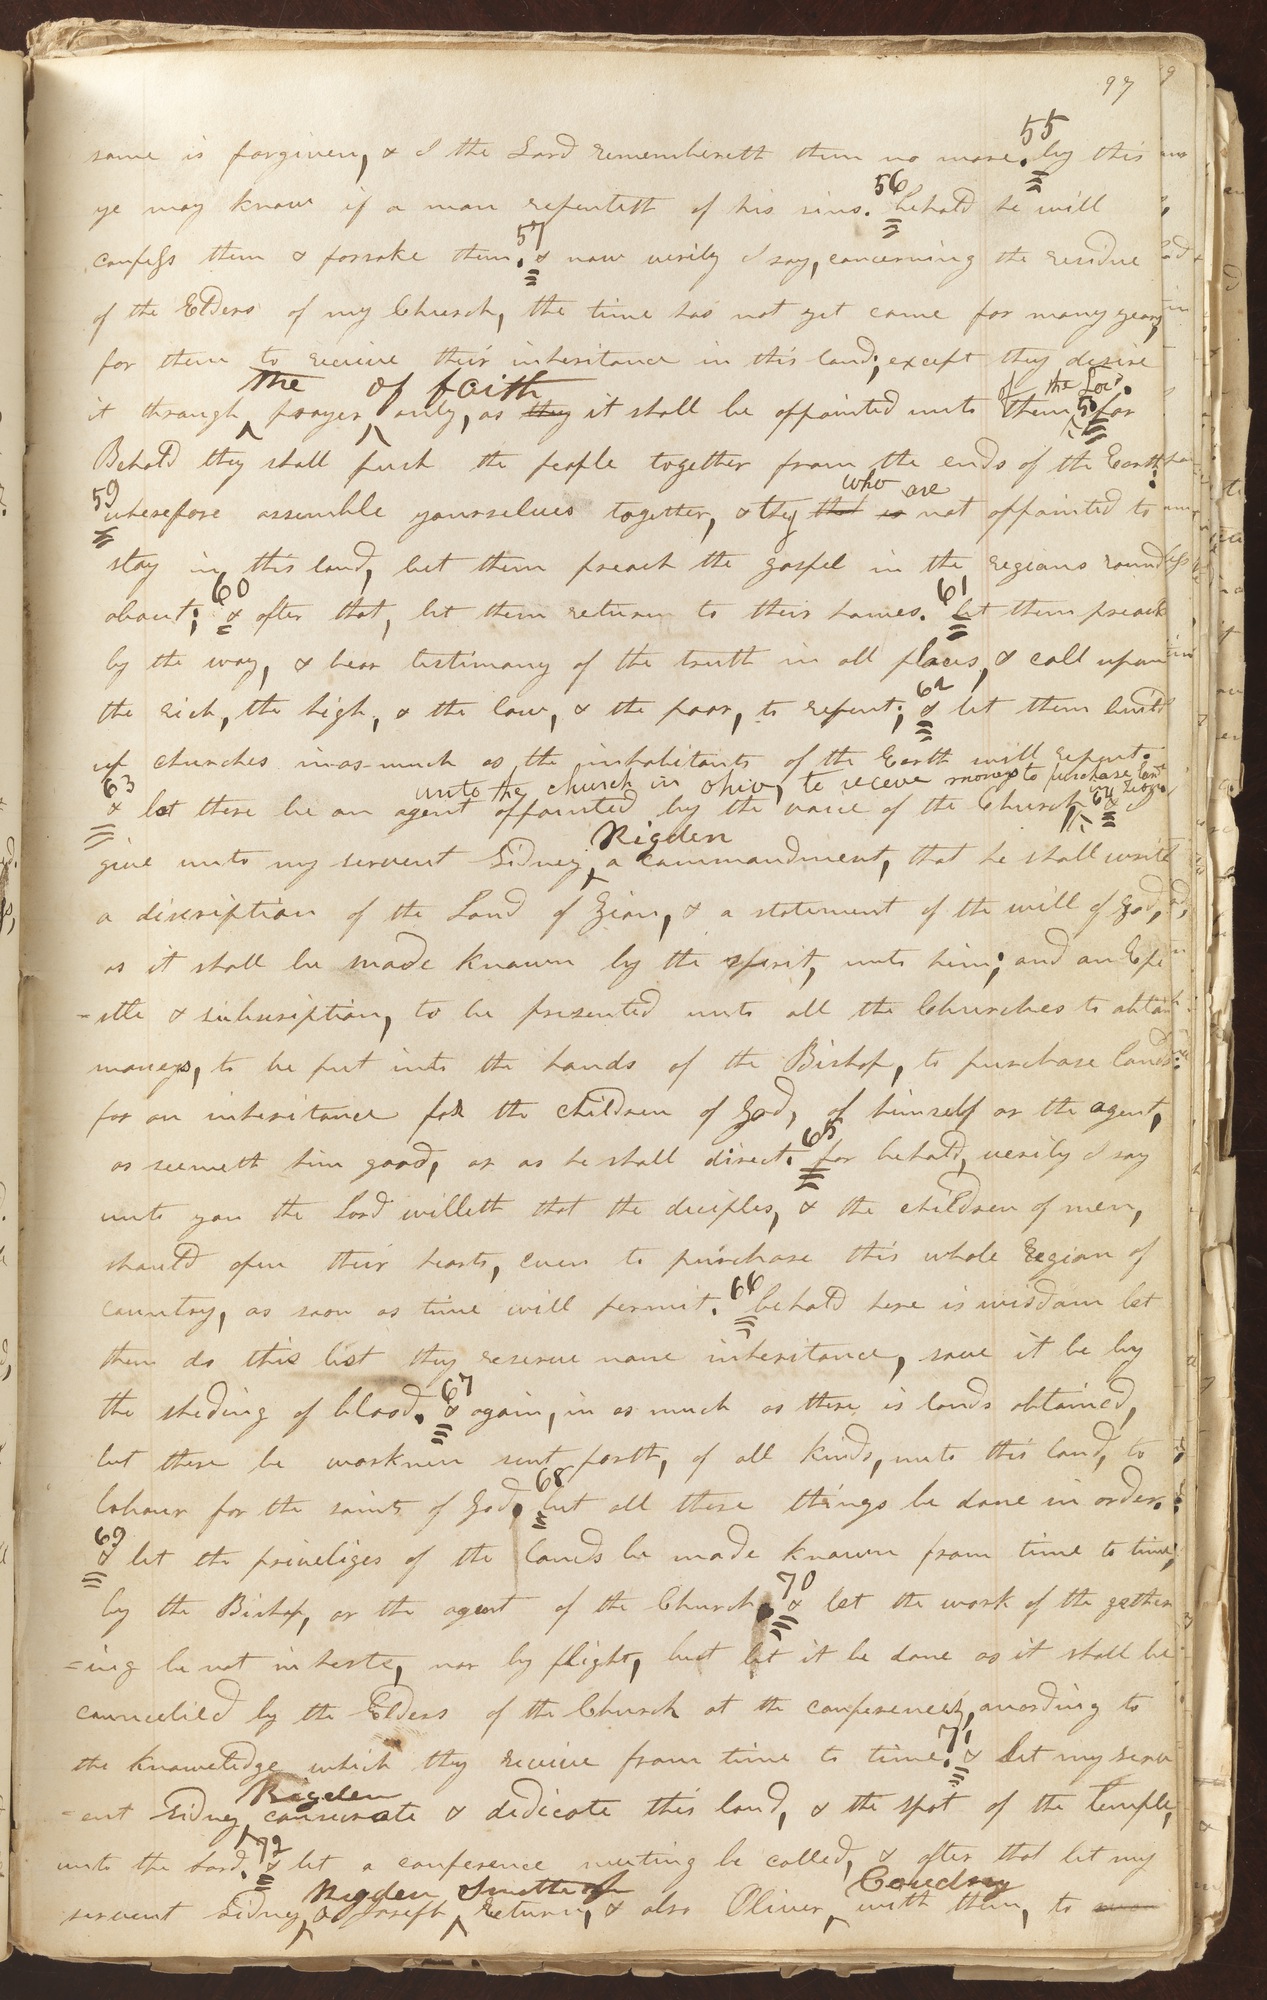 97
same is forgiven, & I the Lord remembereth them no more. 55 by this
ye may know if a man repenteth of his sins. 56 behold he will
confess them & forsake them. 57 & now verily I say, concerning the residue
of the Elders of my Church, the time has not yet come for many years,
for them to receive their inheritance in this land; except they desire
the of faith of the Lord.
it through prayer only, as they it shall be appointed unto them 58 for
Behold they shall push the people together from the ends of the Earth:
who are
59 wherefore assemble yourselves together, & they that is not appointed to
stay in this land, let them preach the gospel in the regions round
about; 60 & after that, let them return to their homes. 61 let them preach
by the way, & bear testimony of the truth in all places, & call upon
the rich, the high, & the low, & the poor, to repent; 62 & let them build
up churches in as much as the inhabitants of the Earth will repent.
unto the church in ohio, to receive moneys to purchase Land in Zion
63 & let there be an agent appointed by the voice of the Church 64 & I
Rigdon
give unto my servent Sidney, a commandment, that he shall write
a discription of the Land of Zion, & a statement of the will of God,
as it shall be made known by the spirit, unto him; and an Epi
=stle & subscription, to be presented unto all the Churches to obtain
moneys, to be put into the hands of the Bishop, to purchase lands
for an inheritance for the children of God, of himself or the agent,
as seemeth him good, or as he shall direct. 65 for behold, verily I say
unto you the Lord willeth that the deciples, & the children of men,
should open their hearts, even to purchase this whole Region of
country, as soon as time will permit. 66 behold here is wisdom let
them do this lest they receive none inheritance, save it be by
the sheding of blood. 67 & again, in as much as there is lands obtained,
let there be workmen sent forth, of all kinds, unto this land, to
labour for the saints of God. 68 let all these things be done in order.
69 & let the priveliges of the lands be made known from time to time,
by the Bishop, or the agent of the Church. 70 & let the work of the gather
=ing be not in haste, nor by flight, but let it be done as it shall be
councelled by the Elders of the Church at the conferences, acording to
the knowledge which they receive from time to time. 71 & let my serv
Rigden
=ent Sidney, consecrate & dedicate this land, & the spot of the Temple,
unto the Lord. 72 & let a conference meeting be called, & after that let my
Rigden Smith Coudrey
servent Sidney, & Joseph, return, & also Oliver, with them, to